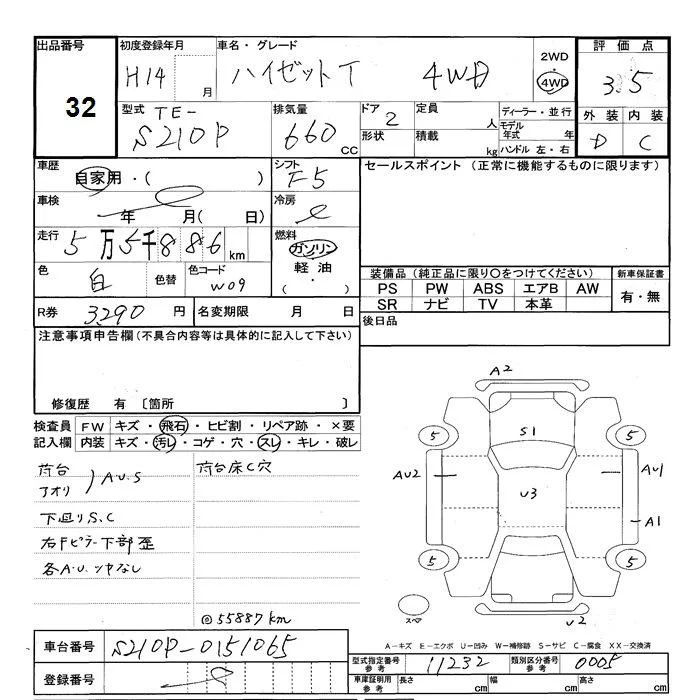 出品番号
32
初度登録年月
H14 月
車名・グレード
ハイゼットT 4WD
2WD
・
4WD
評価点
3.5
型式 TE-
S210P
排気量
660 cc
ドア 2
形状
定員 人
積載 kg
ディーラー・並行
モデル
年式 年
ハンドル 左・右
外装 内装
D C
車歴
自家用・( )
シフト
F5
車検
年 月( 日)
冷房
走行
5万5千886 km
燃料
ガソリン
軽油
( ・ )
色
白
色替
色コード
W09
R券 3290 円
名変期限 月 日
セールスポイント (正常に機能するものに限ります)
装備品 (純正品に限り○をつけてください)
新車保証書
PS PW ABS エアB AW
SR ナビ TV 本革
有・無
後日品
注意事項申告欄(不具合内容等は具体的に記入して下さい)
修復歴 有 〔箇所 〕
検査員 FW キズ・飛石・ヒビ割・リペア跡・×要
記入欄 内装 キズ・汚レ・コゲ・穴・スレ・キレ・破レ
荷台
アオリ ) A.U.S
荷台床C穴
下回りS.C
右Fピラー下部歪
各A.U.ツヤなし
◎55887km
A2
S1
5
5
AU2
U3
AU1
A1
5
5
スペア
U2
A-キズ E-エクボ U-凹み W-補修跡 S-サビ C-腐食 XX-交換済
車台番号 S210P-0151065
登録番号
型式指定番号
参考
11232
類別区分番号
参考
0005
車庫証明用
参考
長さ cm 幅 cm 高さ cm